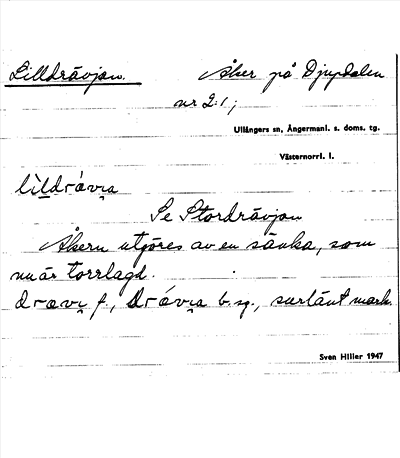 Lilldrävjan. Åker på Djupdalen
nr 2:1;
Ullångers sn, Ångermanl. s. doms. tg.
Västernorrl. l.
lìldrávi̯a
Se Stordrävjan
Åkern utgöres av en sänka, som
nu är torrlagd.
drævi̯ f., drávi̯a b. sg., surlänt mark
Sven Hiller 1947